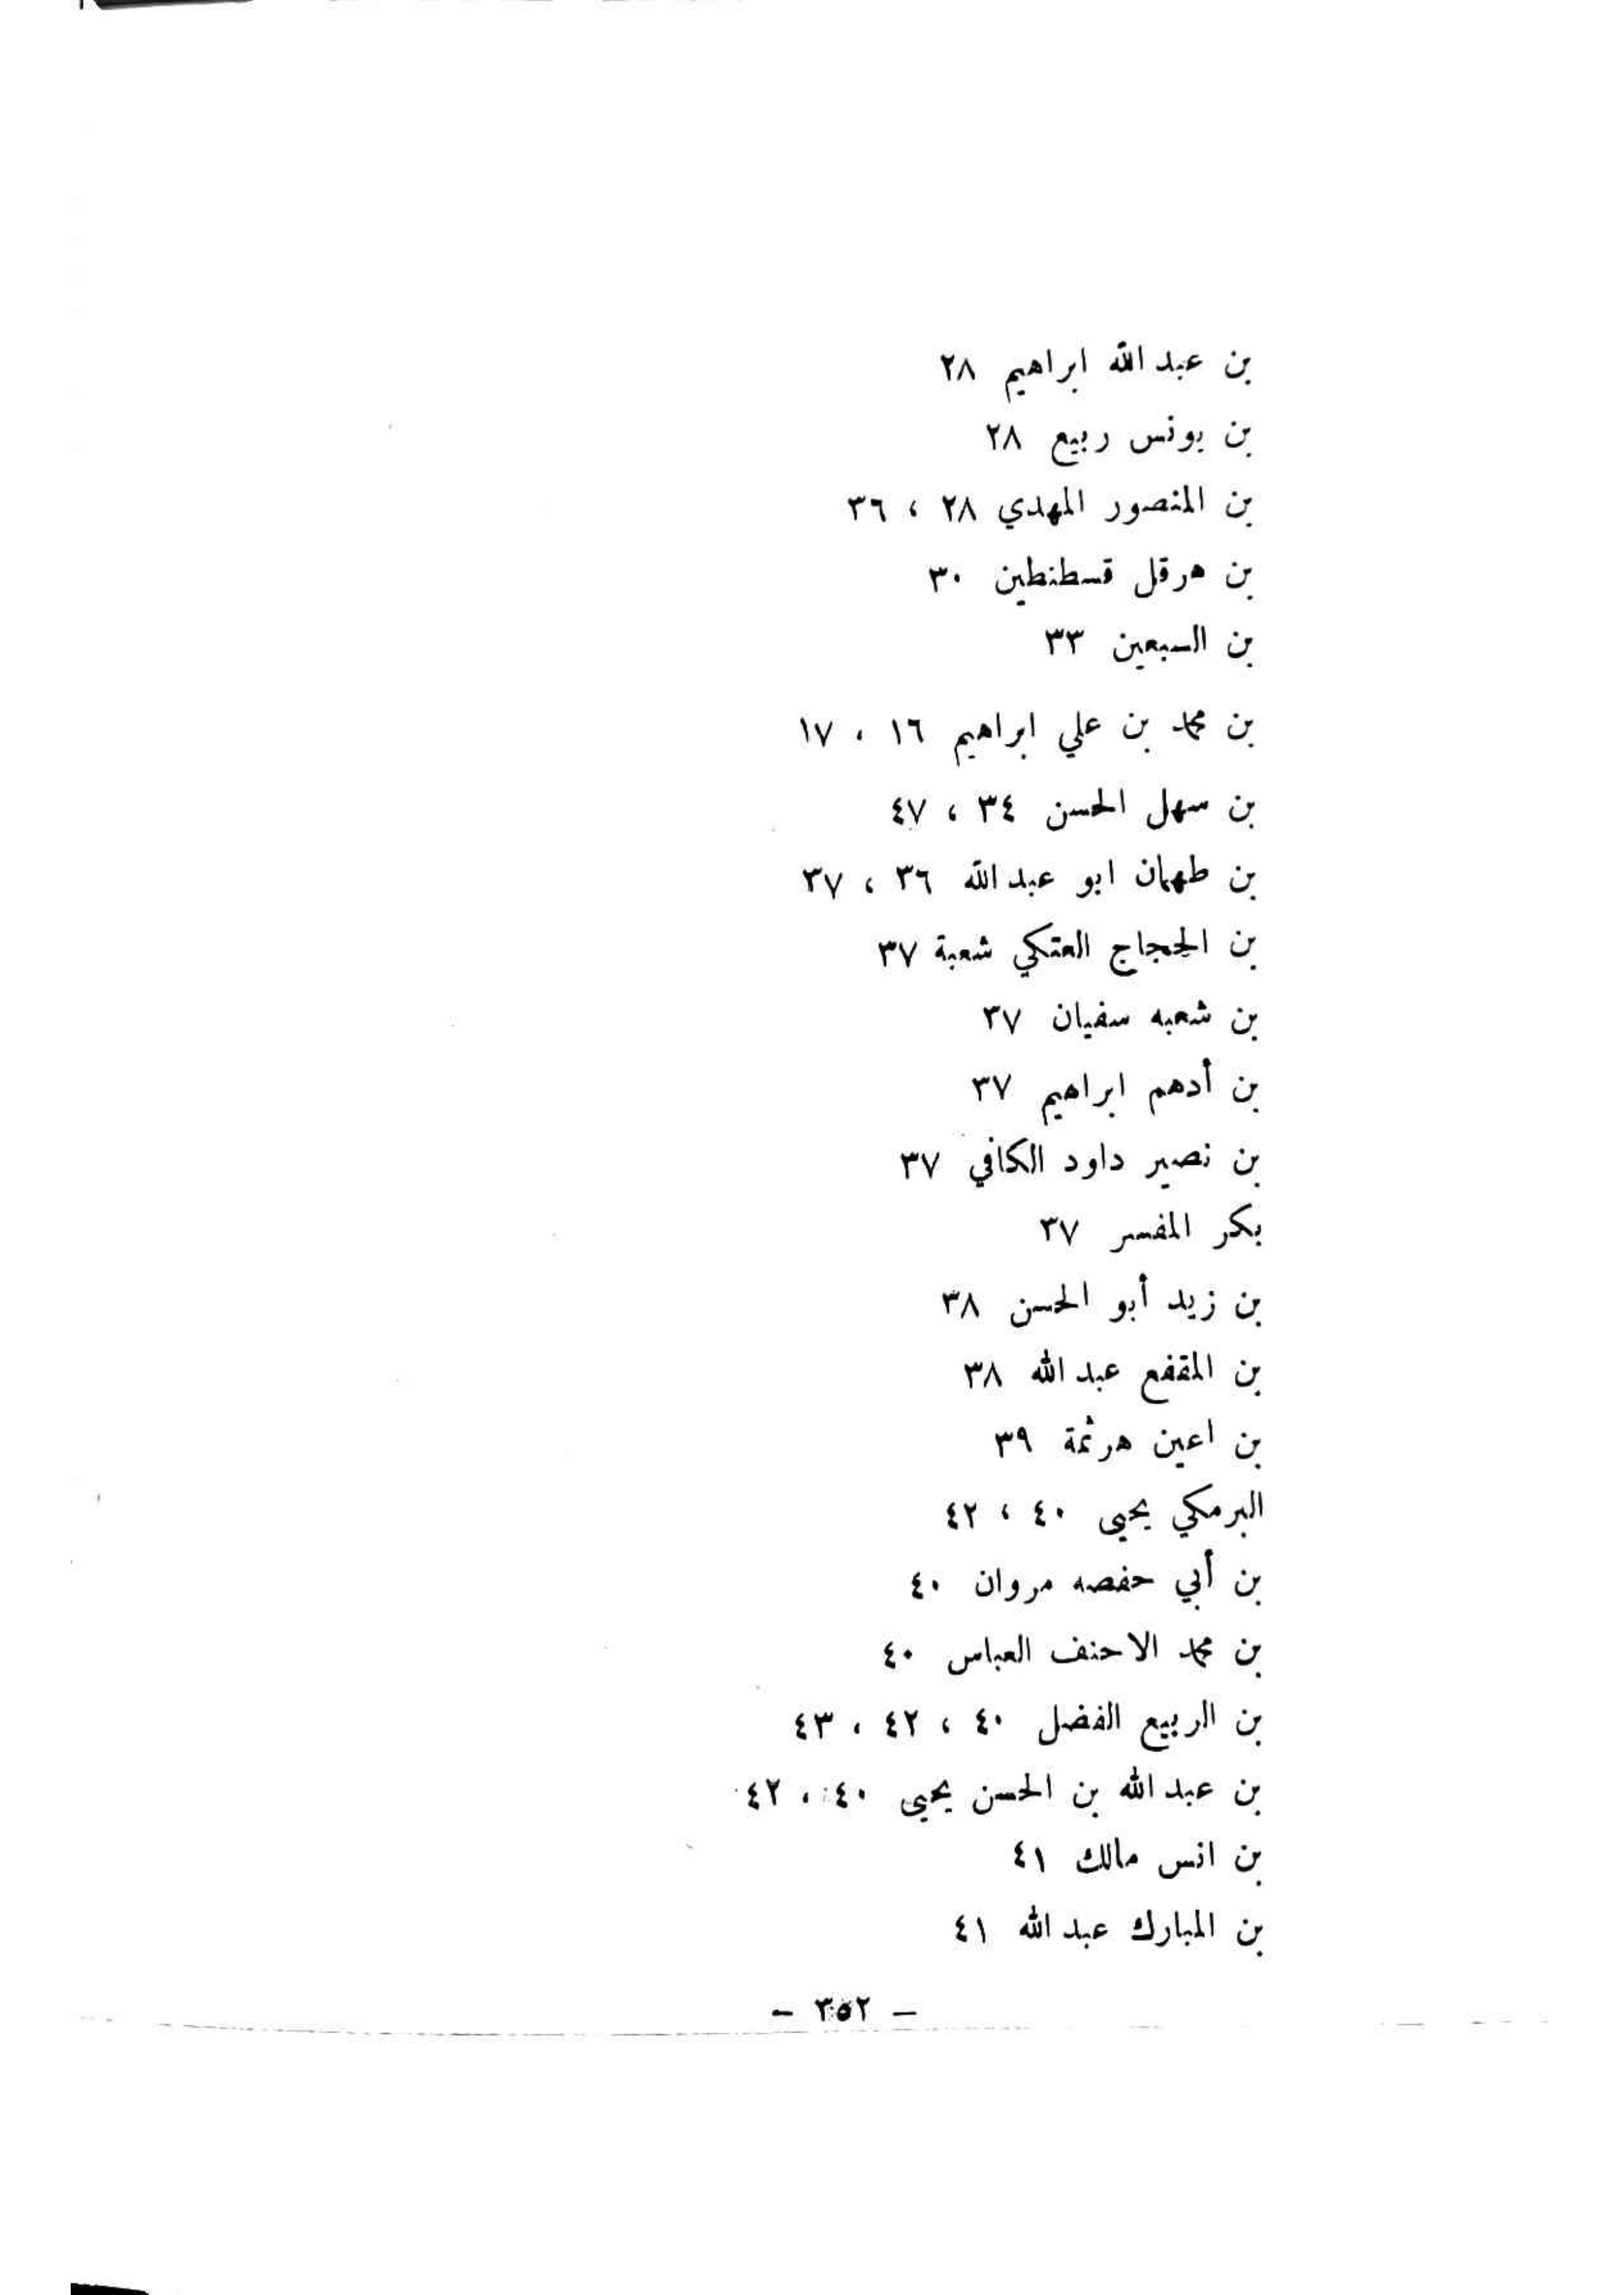 بن عبدالله ابراهيم ٢٨
بن يونس ربيع ٢٨
بن المنصور المهدي ٢٨ ، ٣٦
بن هرقل قسطنطين ٣٠
بن السبعين ٣٣
بن محمد بن علي ابراهيم ١٦ ، ١٧
بن سهل الحسن ٣٤ ، ٤٧
بن طهمان ابو عبدالله ٣٦ ، ٣٧
بن الحجاج العتكي شعبة ٣٧
بن شعبه سفيان ٣٧
بن أدهم ابراهيم ٣٧
بن نصير داود الكافي ٣٧
بكر المفسر ٣٧
بن زيد أبو الحسن ٣٨
بن المقفع عبدالله ٣٨
بن اعين هرثمة ٣٩
البرمكي يحيى ٤٠ ، ٤٢
بن أبي حفصه مروان ٤٠
بن محمد الاحنف العباس ٤٠
بن الربيع الفضل ٤٠ ، ٤٢ ، ٤٣
بن عبدالله بن الحسن يحيى ٤٠ ، ٤٢
بن انس مالك ٤١
بن المبارك عبدالله ٤١
– ٣٥٢ –